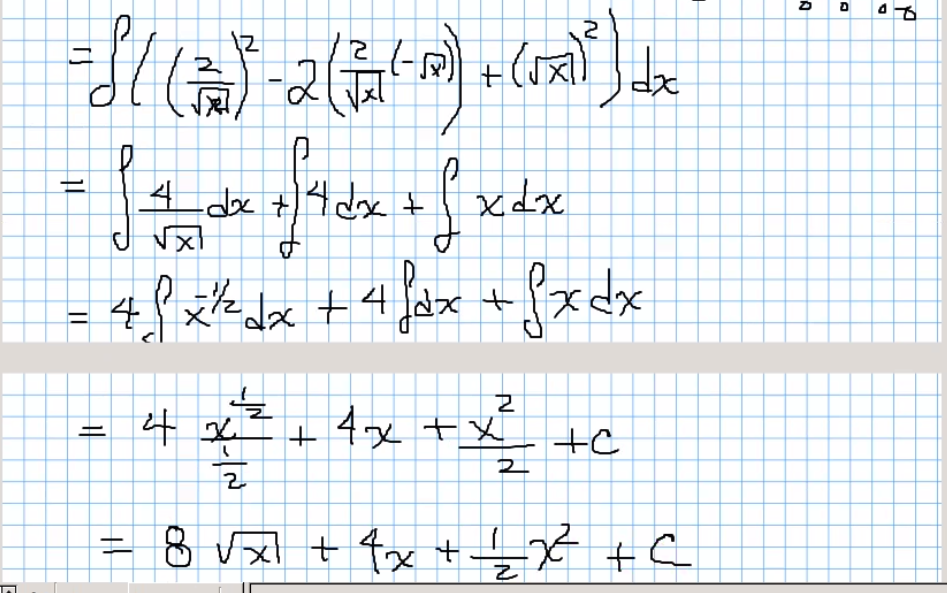 = ∫((2/√x)² - 2(2/√x(-√x)) + (√x)²)dx
= ∫ 4/√x dx + ∫4dx + ∫ x dx
= 4∫ x^(-1/2) dx + 4∫dx + ∫x dx
= 4 x^(1/2)/(1/2) + 4x + x²/2 + C
= 8 √x + 4x + 1/2 x² + C